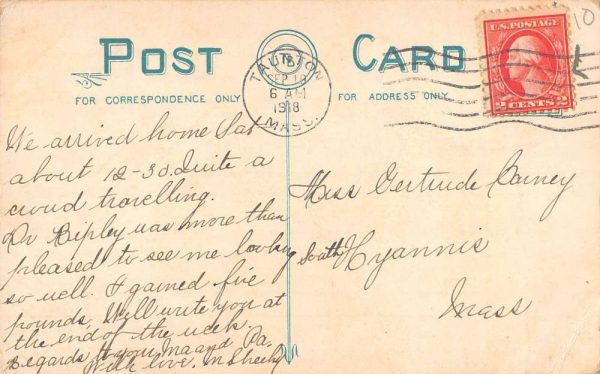 POST CARD
FOR CORRESPONDENCE ONLY
FOR ADDRESS ONLY
TAUNTON
SEP 10
6 AM
1918
MASS.
U.S. POSTAGE
2 CENTS 2
10
We arrived home Sat
about 12-30. Quite a
crowd travelling.
Dr Ripley was more than
pleased to see me looking
so well. I gained five
pounds. Will write you at
the end of the week.
Regards to you Ma and Pa.
With love. M Sheehy
Miss Gertrude
South Hyannis
Mass